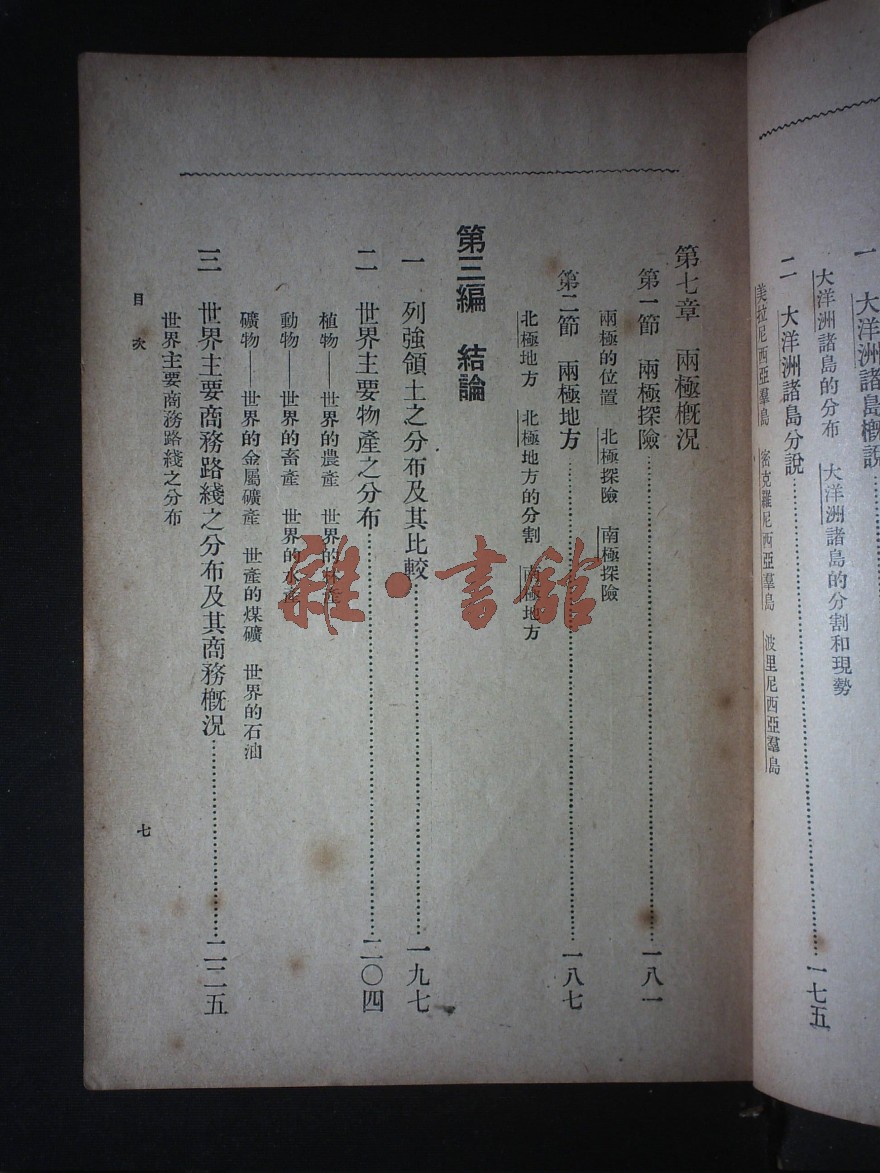 一 大洋洲諸島概說
大洋洲諸島的分布 大洋洲諸島的分割和現勢
二 大洋洲諸島分說…………一七五
美拉尼西亞羣島 密克羅尼西亞羣島 波里尼西亞羣島
第七章 兩極概況
第一節 兩極探險…………一八一
兩極的位置 北極探險 南極探險
第二節 兩極地方…………一八七
北極地方 北極地方的分割 南極地方
第三編 結論
一 列強領土之分布及其比較…………一九七
二 世界主要物產之分布…………二〇四
植物——世界的農產 世界的林產
動物——世界的畜產 世界的水產
礦物——世界的金屬礦產 世產的煤礦 世界的石油
三 世界主要商務路綫之分布及其商務概況…………二二五
世界主要商務路綫之分布
目次
七
雜·書館